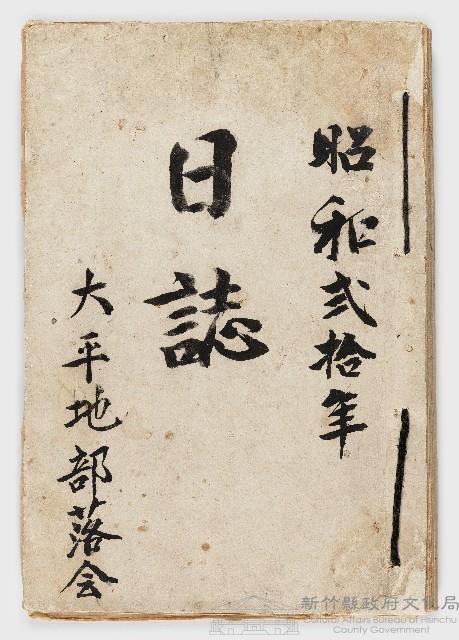 昭和弐拾年
日誌
大平地部落会
新竹縣政府文化局
Cultural Affairs Bureau of Hsinchu
County Government